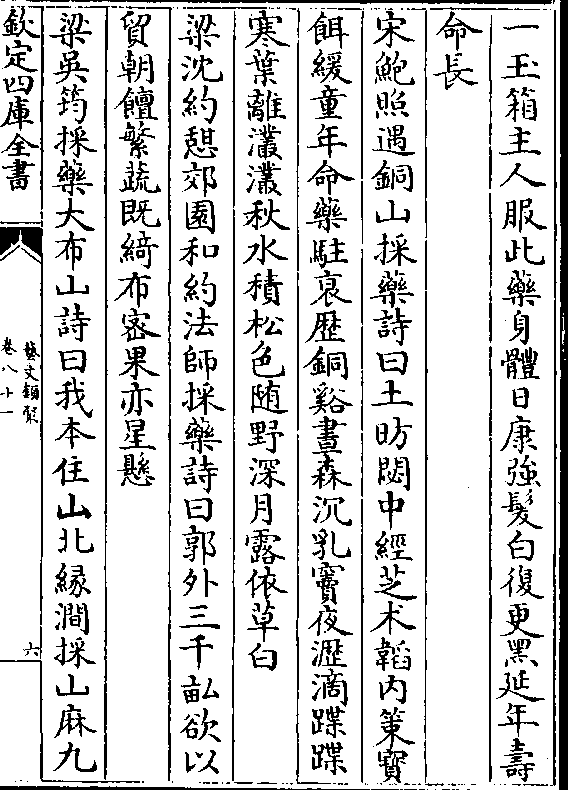 一玉箱主人服此藥身體日康強髮白復更黑延年壽
命長
宋鮑照遇銅山採藥詩曰土昉閟中經芝术韜内策寶
餌緩童年命藥駐衰歴銅谿晝森沉乳竇夜瀝滴蹀蹀
寒葉離灇灇秋水積松色随野深月露依草白
梁沈約憩郊園和約法師採藥詩曰郭外三千畆欲以
貿朝饘繁蔬既綺布宻果亦星懸
梁吳筠採藥大布山詩曰我本住山北緣澗採山麻九
欽定四庫全書
藝文類聚
卷八十一
六